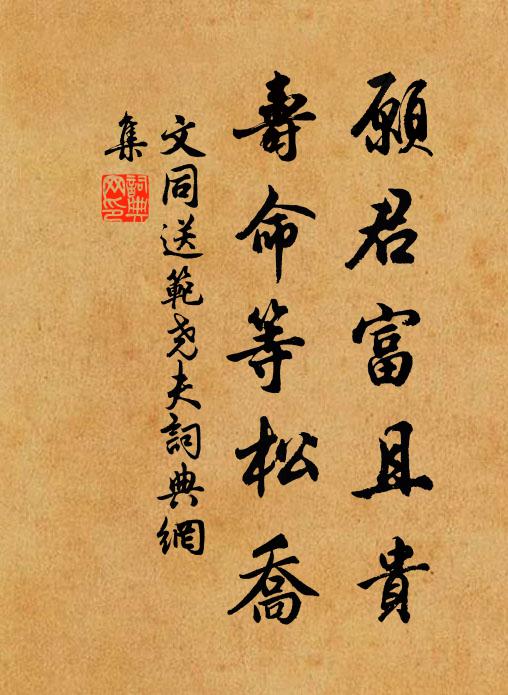 願君富且貴
壽命等松喬
文同送範尧夫詞典網
集
詞典
网印